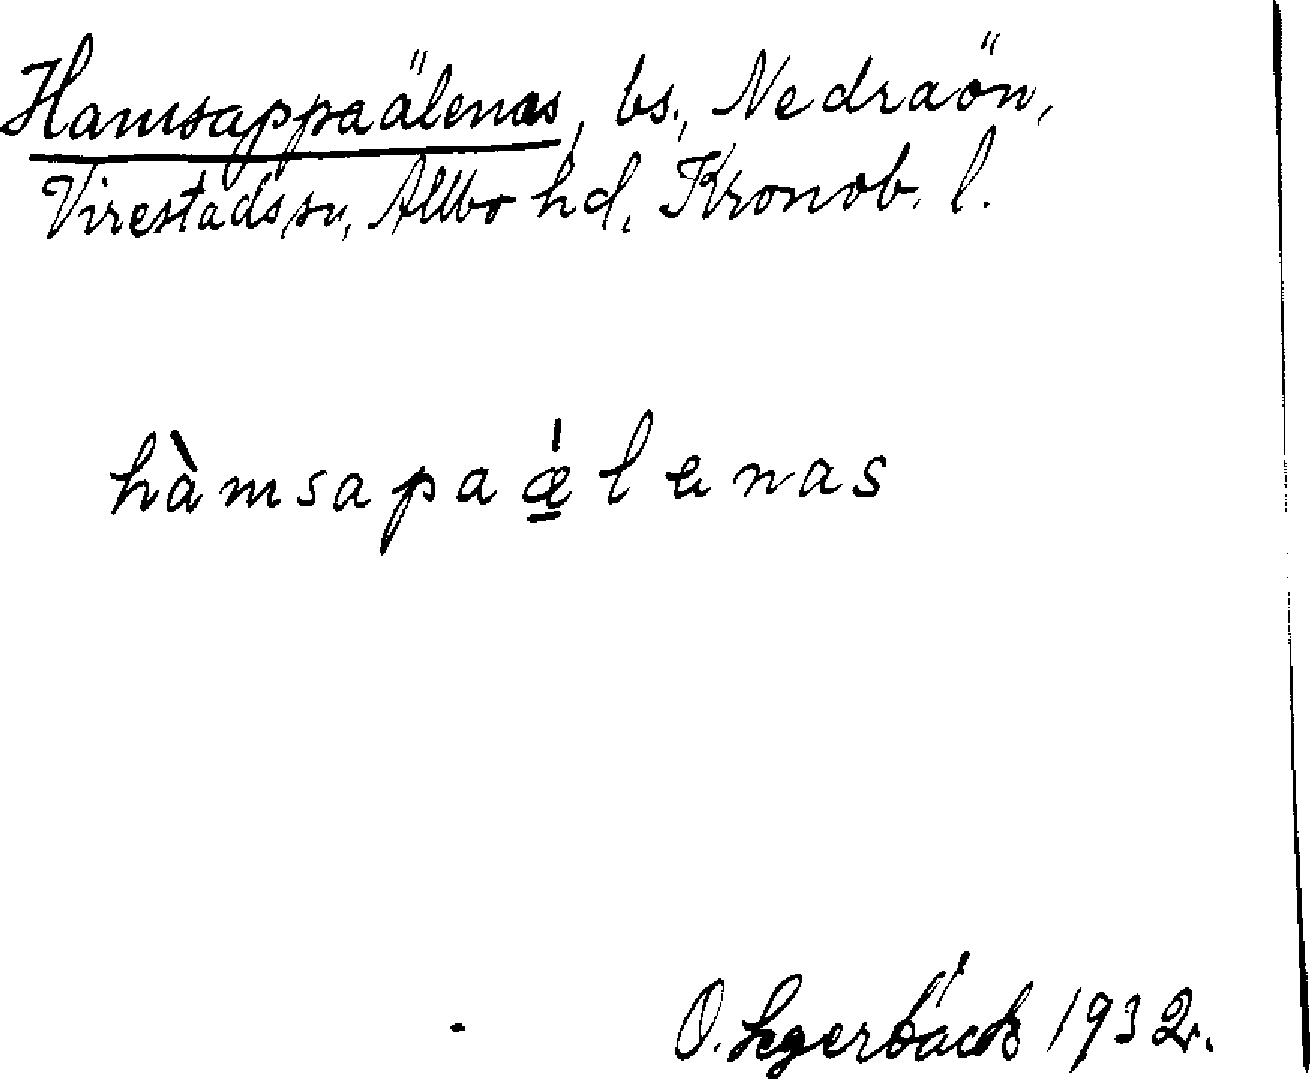 Hamsappaälenas, bs., Nedraön,
Virestads sn, Allbo hd, Kronob. l.
hàmsapaǽ̱lenas
O. Segerbäck 1932.